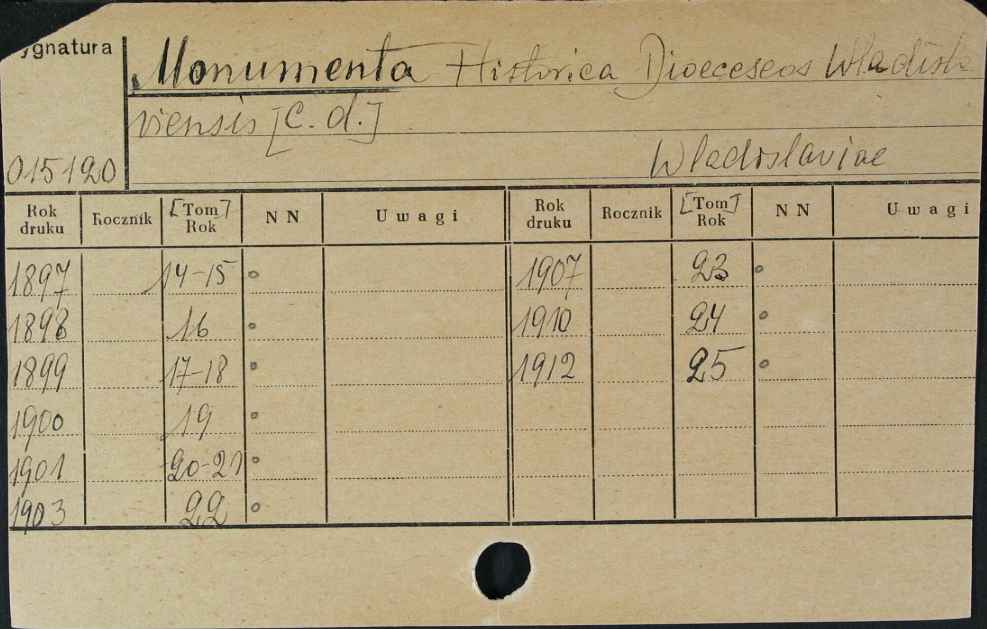 ygnatura
Monumenta Historica Dioeceseos Wladisla
viensis [C. d.]
015120
Wladislaviae
Rok druku Rocznik [Tom] Rok NN Uwagi Rok druku Rocznik [Tom] Rok NN Uwagi
1897 14-15 1907 23
1898 16 1910 24
1899 17-18 1912 25
1900 19
1901 20-21
1903 22